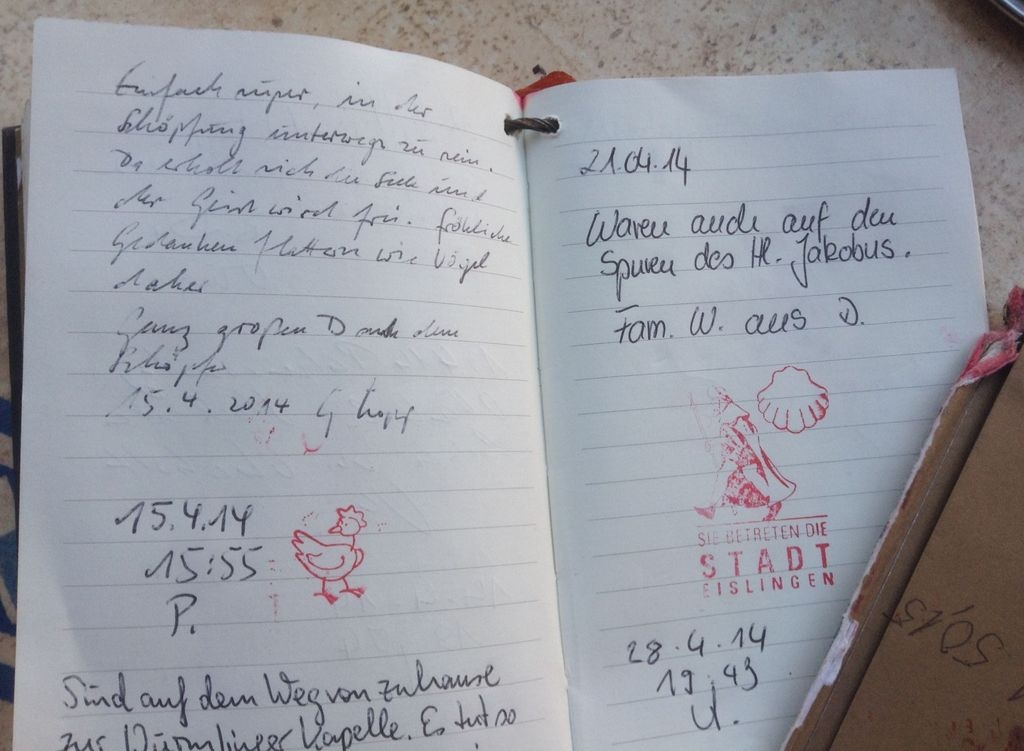 Einfach super, in der
Schöpfung unterwegs zu sein.
Da erholt sich die Seele und
der Geist wird frei. Fröhliche
Gedanken flattern wie Vögel
daher
Ganz großen D dem
Schöpfer
15.4.2014 G
15.4.14
15:55
P.
Sind auf dem Weg von zuhause
zur Wurmlinger Kapelle. Es tut so
21.04.14
Waren auch auf den
Spuren des Hl. Jakobus.
Fam. W. aus D.
SIE BETRETEN DIE
STADT
EISLINGEN
28.4.14
19:43
U.